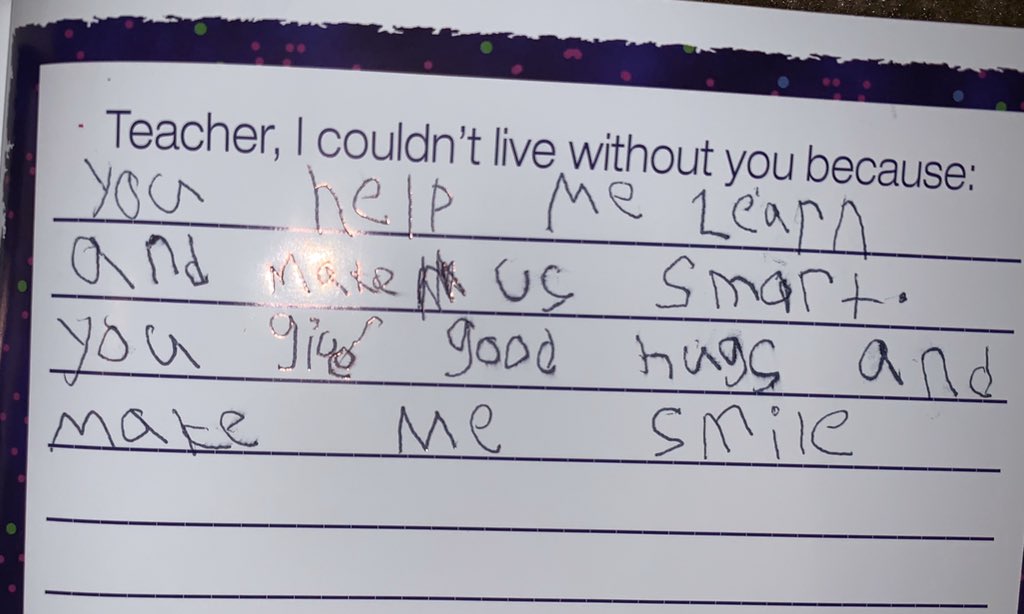 Teacher, I couldn't live without you because:
you help me Learn
and make us smart.
you give good hugs and
make me smile